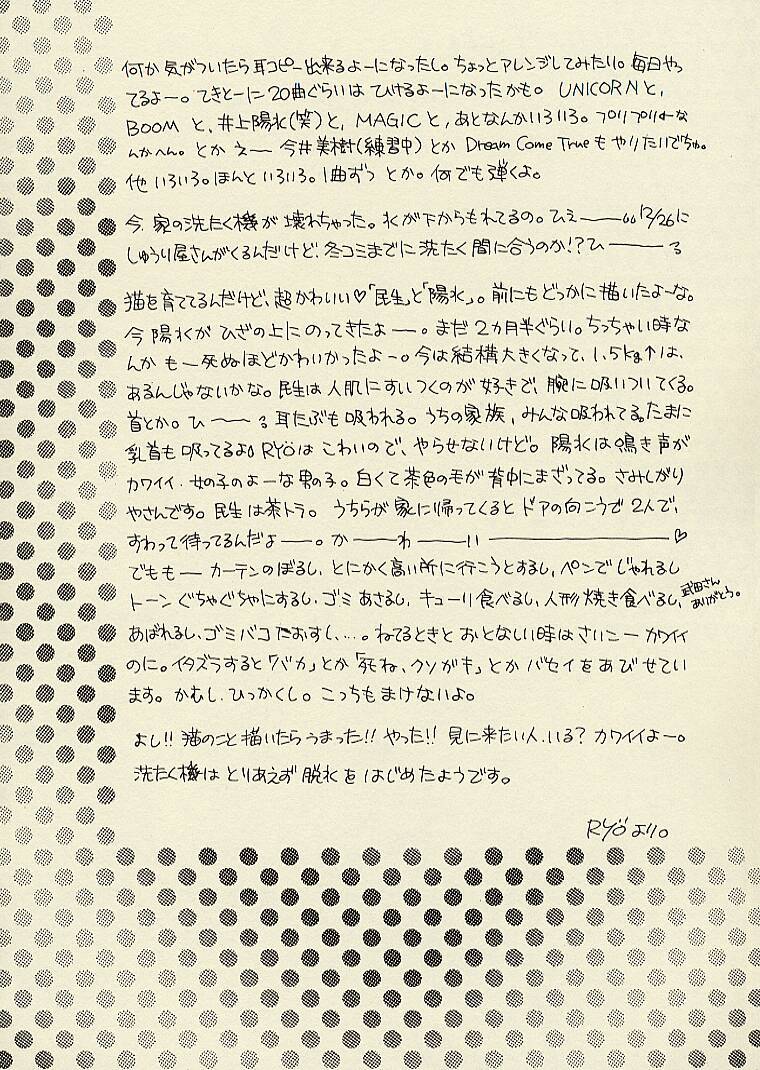 何か気がついたら耳コピー出来るよーになったし。ちょっとアレンジしてみたい。毎日やっ
てるよー。てきとーに20曲ぐらいはひけるよーになったかも。UNICORNと,
BOOMと,井上陽水(笑)と,MAGICと,あとなんかいろいろ。プリプリな
んかへん。とかえー今井美樹(練習中)とかDream Come Trueもやりたいでちゅ。
他いろいろ。ほんといろいろ。1曲ずつとか。何でも弾くよ。
今,家の洗たく機が壊れちゃった。水が下からもれてるの。ひえ——12/26に
しゅうり屋さんがくるんだけど,冬コミまでに洗たく間に合うのか!?ひ——る
猫を育ててるんだけど,超かわいい♡「民生」と「陽水」。前にもどっかに描いたよーな。
今陽水がひざの上にのってきたよー。まだ2ヵ月半ぐらい。ちっちゃい時な
んかもー死ぬほどかわいかったよー。今は結構大きくなって,1.5kg↑は,
あるんじゃないかな。民生は人肌にすいつくのが好きで,腕に吸いついてくる。
首とか。ひ——る耳たぶも吸われる。うちの家族,みんな吸われてる。たまに
乳首も吸ってるよ。RYÖはこわいので,やらせないけど。陽水は鳴き声が
カワイイ.女の子のよーな男の子。白くて茶色の毛が背中にまざってる。さみしがり
やさんです。民生は茶トラ。うちらが家に帰ってくるとドアの向こうで2人で,
すわって待ってるんだよ——。か——わ——いい————♡
でももーカーテンのぼるし,とにかく高い所に行こうとするし,ペンでじゃれるし
トーンぐちゃぐちゃにするし.ゴミあさるし,キューリ食べるし,人形焼き食べるし,武田さんありがとう。
あばれるし,ゴミバコたおすし,…。ねてるときとおとなしい時はさいこーカワイイ
のに。イタズラすると「バカ」とか「死ね,クソガキ」とかバセイをあびせてい
ます。かむし.ひっかくし。こっちもまけないよ。
よし!!猫のこと描いたらうまった!!やった!!見に来たい人.いる?カワイイよー。
洗たく機はとりあえず脱水をはじめたようです。
RYÖより。